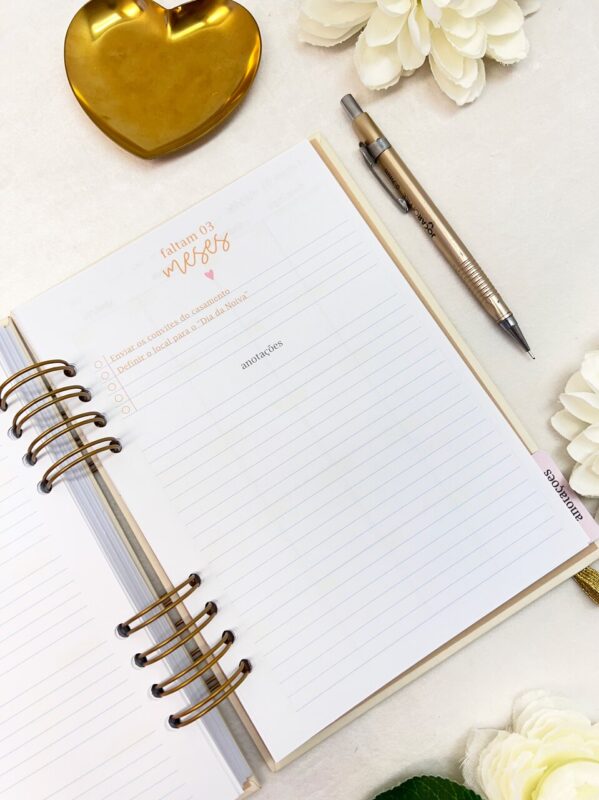 faltam 03
meses
Enviar os convites do casamento
Definir o local para o "Dia da Noiva"
anotações
anotações